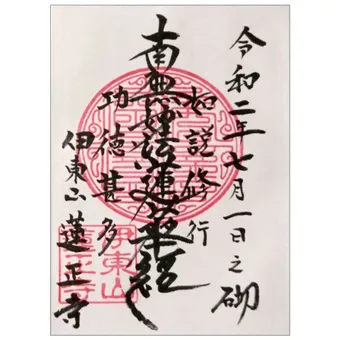 令和二年七月一日之砌
如説修行
南無妙法蓮華経
功徳甚多
伊東山 蓮正寺
伊東山
蓮正寺